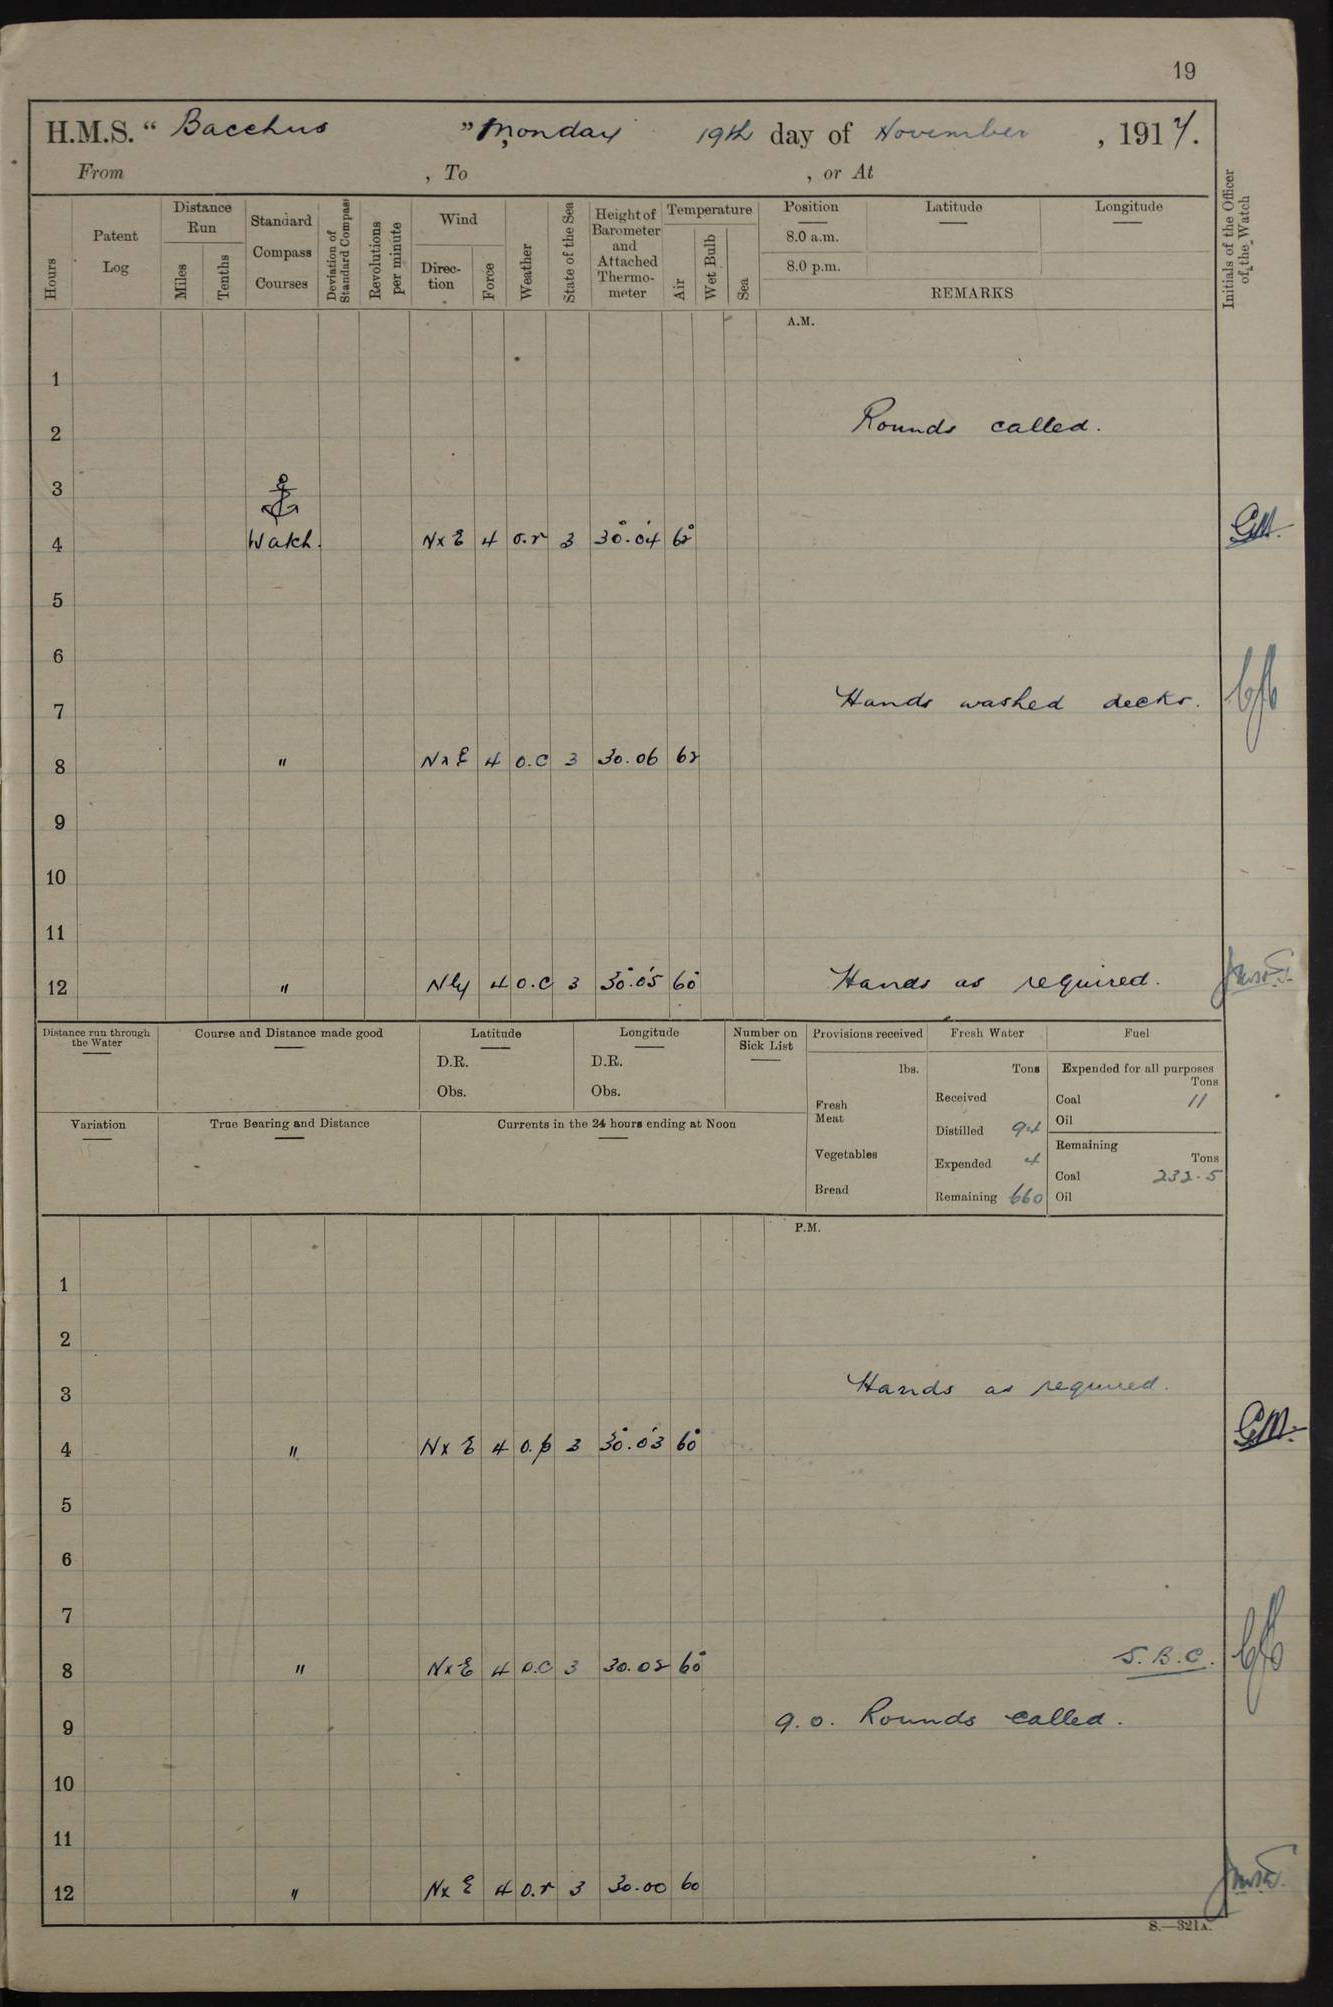 19
H.M.S. “ Bacchus ” , Monday 19th day of November , 1917.
From , To , or At
Hours
Patent Log
Distance Run
Miles
Tenths
Standard Compass Courses
Deviation of Standard Compass
Revolutions per minute
Wind
Direc-tion
Force
Weather
State of the Sea
Height of Barometer and Attached Thermo-meter
Temperature
Air
Wet Bulb
Sea
Position Latitude Longitude
8.0 a.m.
8.0 p.m.
REMARKS
Initials of the Officer of the Watch
A.M.
1
2 Rounds called.
3
4 Watch. NxE 4 o.r 3 30°.04' 62°
5
6
7 Hands washed decks.
8 " NxE 4 o.c 3 30.06 62
9
10
11
12 " Nly 4 o.c 3 30°.05' 60° Hands as required.
Distance run through the Water
Course and Distance made good
Latitude
D.R.
Obs.
Longitude
D.R.
Obs.
Number on Sick List
Provisions received
lbs.
Fresh Meat
Vegetables
Bread
Fresh Water
Tons
Received
Distilled 94
Expended 4
Remaining 660
Fuel
Expended for all purposes
Tons
Coal 11
Oil
Remaining
Tons
Coal 232.5
Oil
Variation
True Bearing and Distance
Currents in the 24 hours ending at Noon
P.M.
1
2
3 Hands as required.
4 " NxE 4 o.p 3 30°.03' 60°
5
6
7
8 " NxE 4 o.c 3 30.02 60° S.B.C.
9 9.0. Rounds called.
10
11
12 " NxE 4 o.r 3 30.00 60
S.—321A.